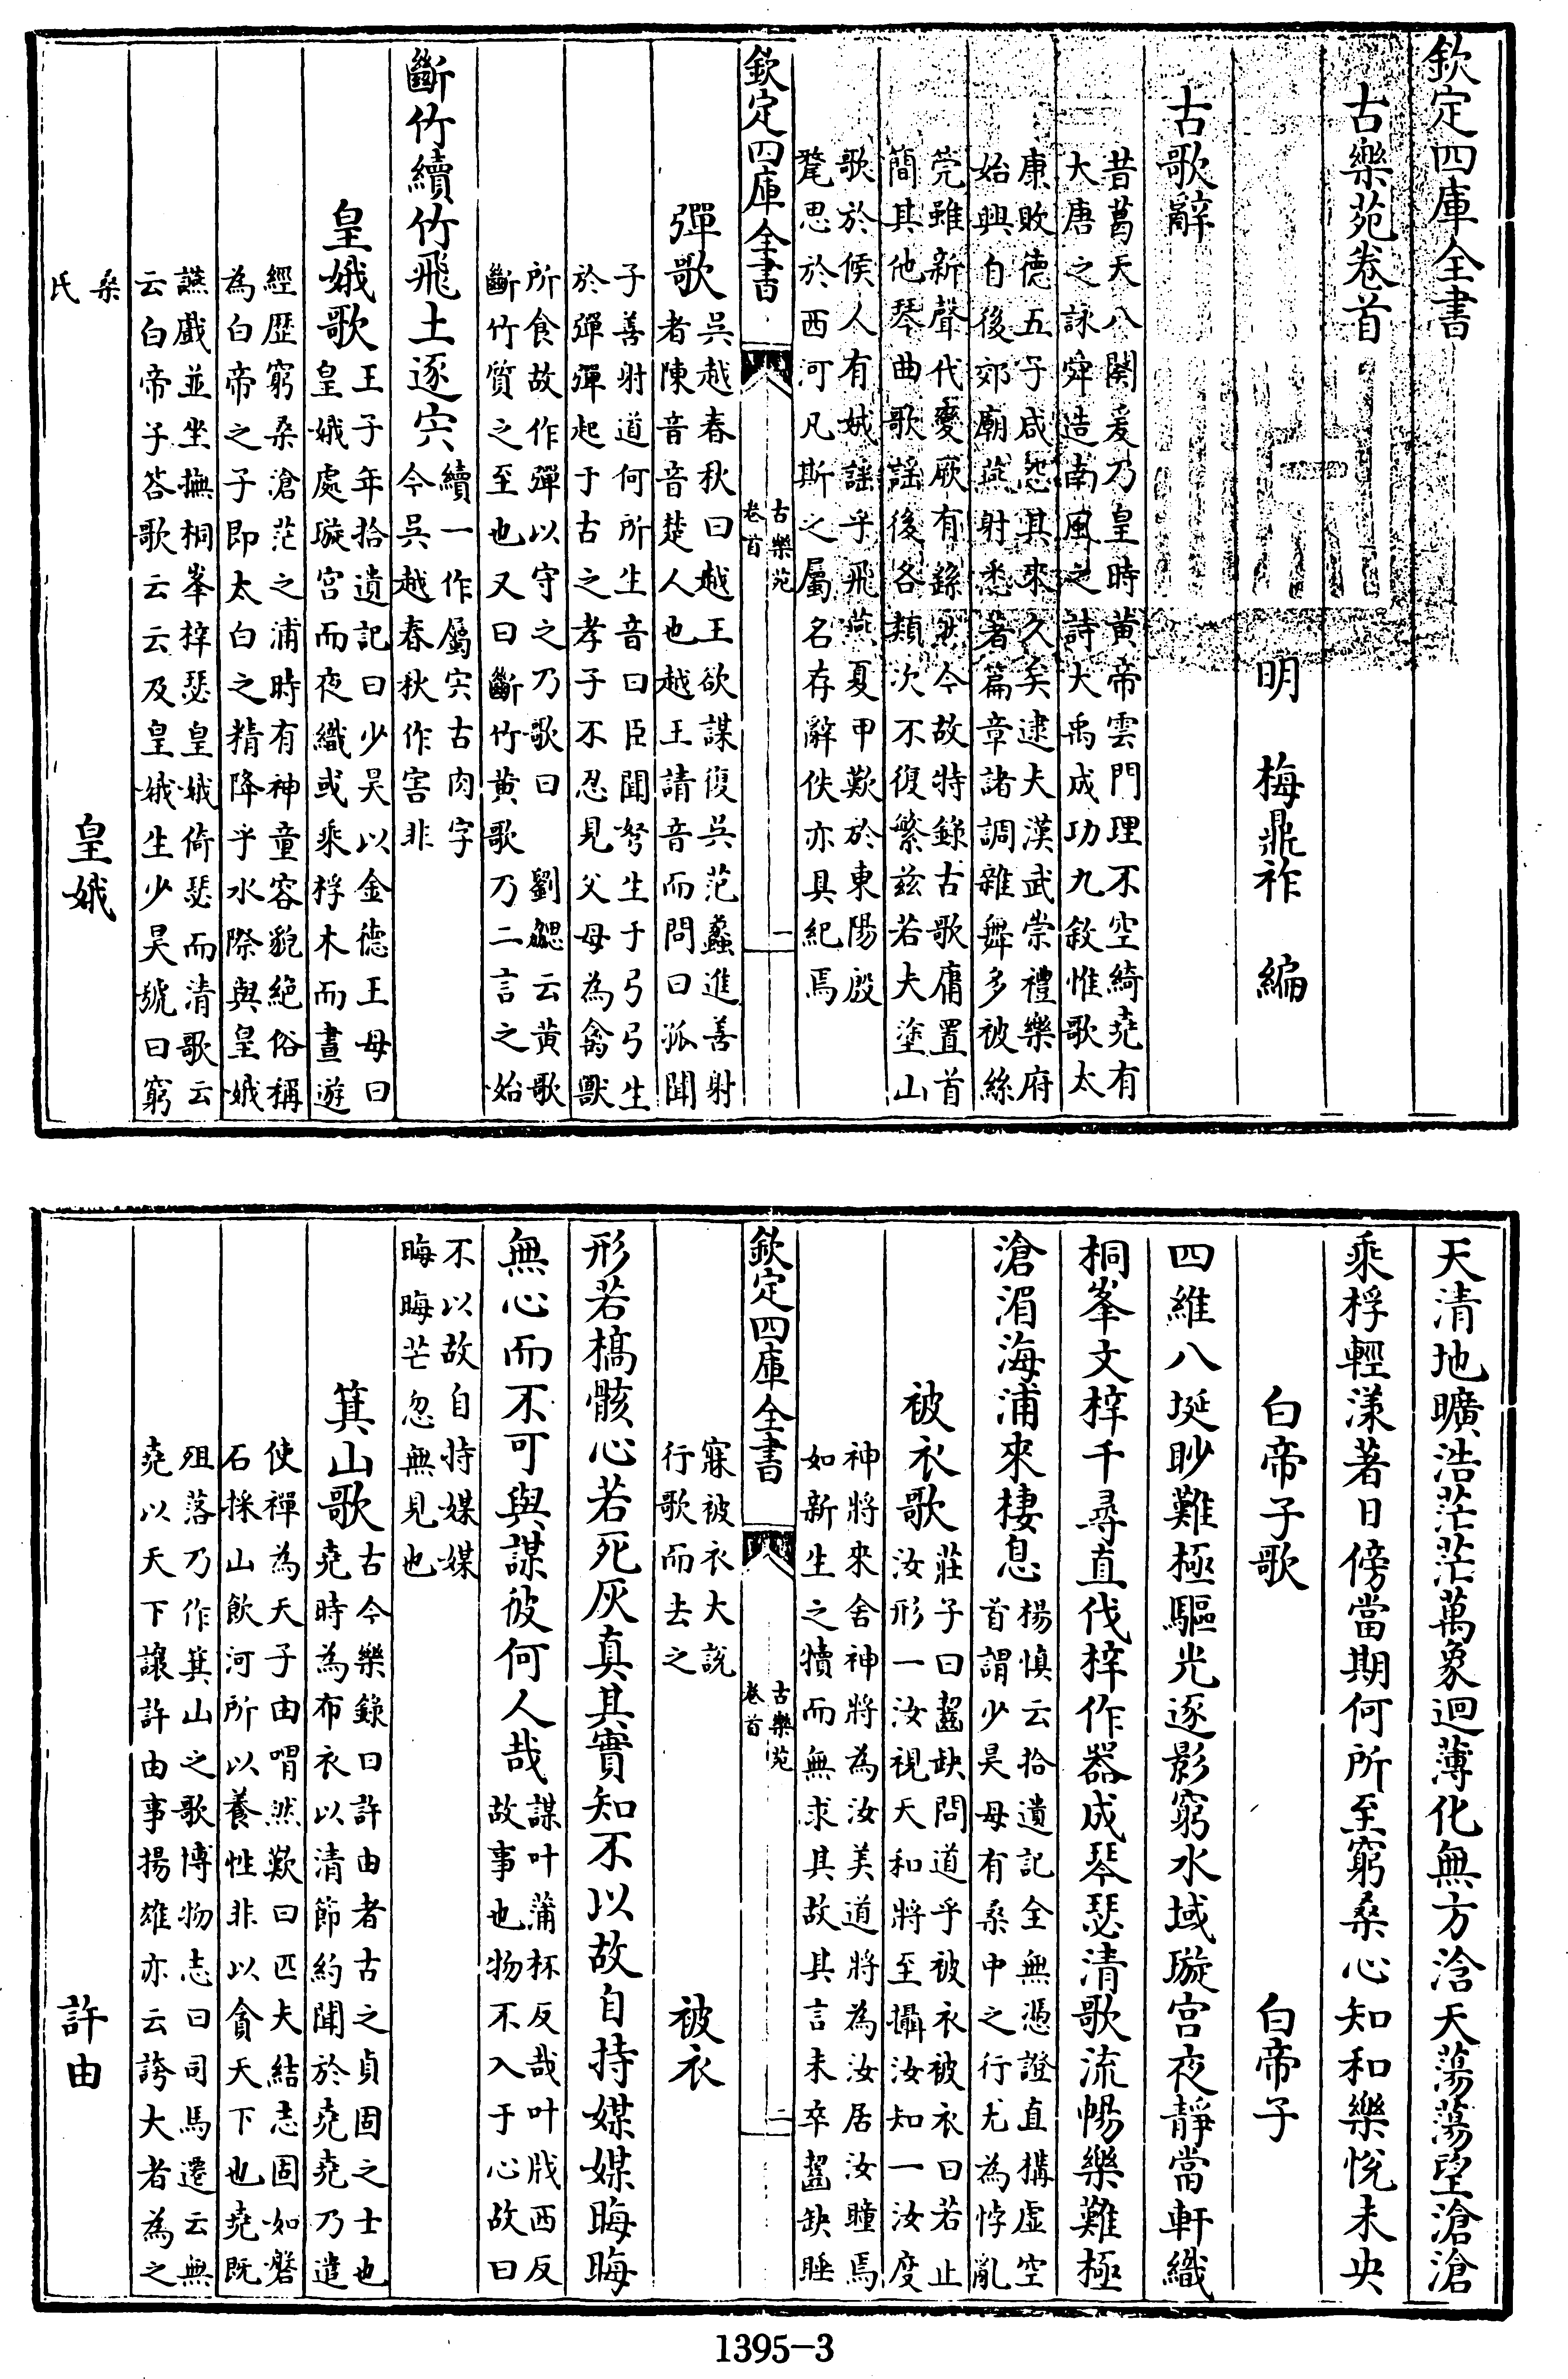 欽定四庫全書
古樂苑卷首
明　梅鼎祚　編
古歌辭
昔葛天八闋爰乃皇時黄帝雲門理不空綺堯有
大唐之詠舜造南風之詩大禹成功九敘惟歌太
康敗德五子咸怨其來久矣逮夫漢武崇禮樂府
始興自後郊廟燕射悉著篇章諸調雜舞多被絲
筦雖新聲代變厥有繇然今故特錄古歌庸置首
簡其他琴曲歌謡後各類次不復繁兹若夫塗山
歌於候人有娀謡乎飛燕夏甲歎於東陽殷
氂思於西河凡斯之屬名存辭佚亦具紀焉
欽定四庫全書
古樂苑
卷首
一
彈歌
吳越春秋曰越王欲謀復吳范蠡進善射
者陳音音楚人也越王請音而問曰孤聞
子善射道何所生音曰臣聞弩生于弓弓生
於彈彈起于古之孝子不忍見父母為禽獸
所食故作彈以守之乃歌曰　劉勰云黄歌
斷竹質之至也又曰斷竹黄歌乃二言之始
斷竹續竹飛土逐宍
續一作屬宍古肉字
今吳越春秋作害非
皇娥歌
王子年拾遺記曰少昊以金德王母曰
皇娥處璇宫而夜織或乘桴木而晝遊
經歴窮桑滄茫之浦時有神童容貌絶俗稱
為白帝之子即太白之精降乎水際與皇娥
讌戲並坐撫桐峯梓瑟皇娥倚瑟而清歌云
云白帝子答歌云云及皇娥生少昊號曰窮
桑
氏
皇娥
天清地曠浩茫茫萬象迴薄化無方浛天蕩蕩望滄滄
乘桴輕漾著日傍當期何所至窮桑心知和樂悅未央
白帝子歌
白帝子
四維八埏眇難極驅光逐影窮水域璇宫夜靜當軒織
桐峯文梓千尋直伐梓作器成琴瑟清歌流暢樂難極
滄湄海浦來棲息
楊慎云拾遺記全無憑證直構虛空
首謂少昊母有桑中之行尤為悖亂
被衣歌
莊子曰齧缺問道乎被衣被衣曰若止
汝形一汝視天和將至攝汝知一汝度
神將來舍神將為汝美道將為汝居汝瞳焉
如新生之犢而無求其故其言未卒齧缺睡
欽定四庫全書
古樂苑
卷首
二
寐被衣大說
行歌而去之
被衣
形若槁骸心若死灰真其實知不以故自持媒媒晦晦
無心而不可與謀彼何人哉
謀叶蒲杯反哉叶戕西反
故事也物不入于心故曰
不以故自持媒媒
晦晦芒忽無見也
箕山歌
古今樂錄曰許由者古之貞固之士也
堯時為布衣以清節約聞於堯堯乃遣
使禪為天子由喟然歎曰匹夫結志固如磐
石採山飲河所以養性非以貪天下也堯既
殂落乃作箕山之歌博物志曰司馬遷云無
堯以天下讓許由事揚雄亦云誇大者為之
許由
1395-3